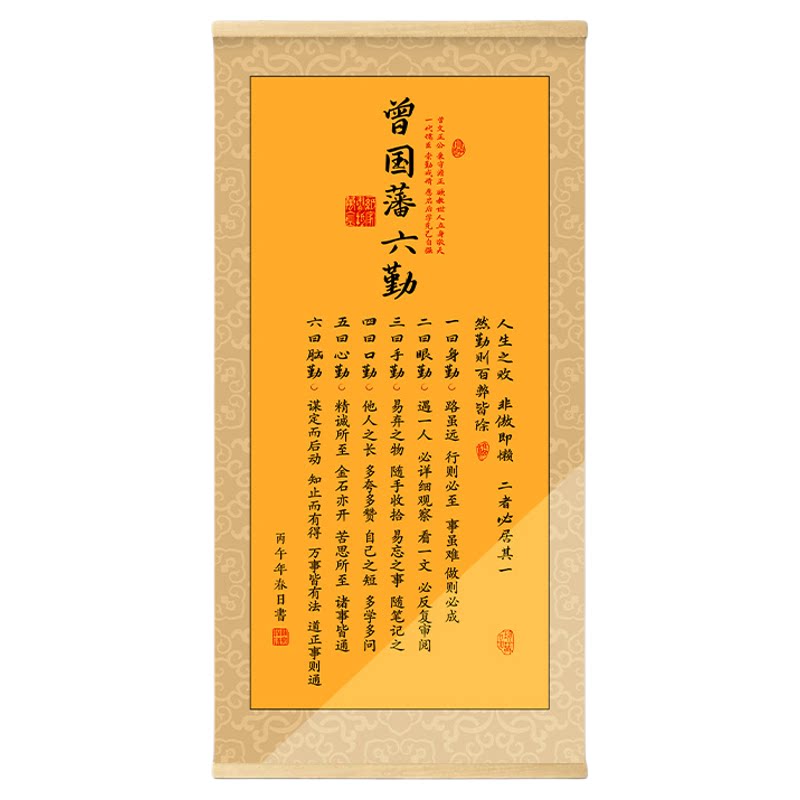 曾国藩六勤
曾文正公 世人立身
一代儒臣 崇勤戒惰 愿吾后学克己自强
人生之败 非傲即懒 二者必居其一
然勤则百弊皆除
一曰身勤 路虽远 行则必至 事虽难 做则必成
二曰眼勤 遇一人 必详细观察 看一文 必反复审阅
三曰手勤 易弃之物 随手收拾 易忘之事 随笔记之
四曰口勤 他人之长 多夸多赞 自己之短 多学多问
五曰心勤 精诚所至 金石亦开 苦思所至 诸事皆通
六曰脑勤 谋定而后动 知止而有得 万事皆有法 道正事则通
丙午年春日書